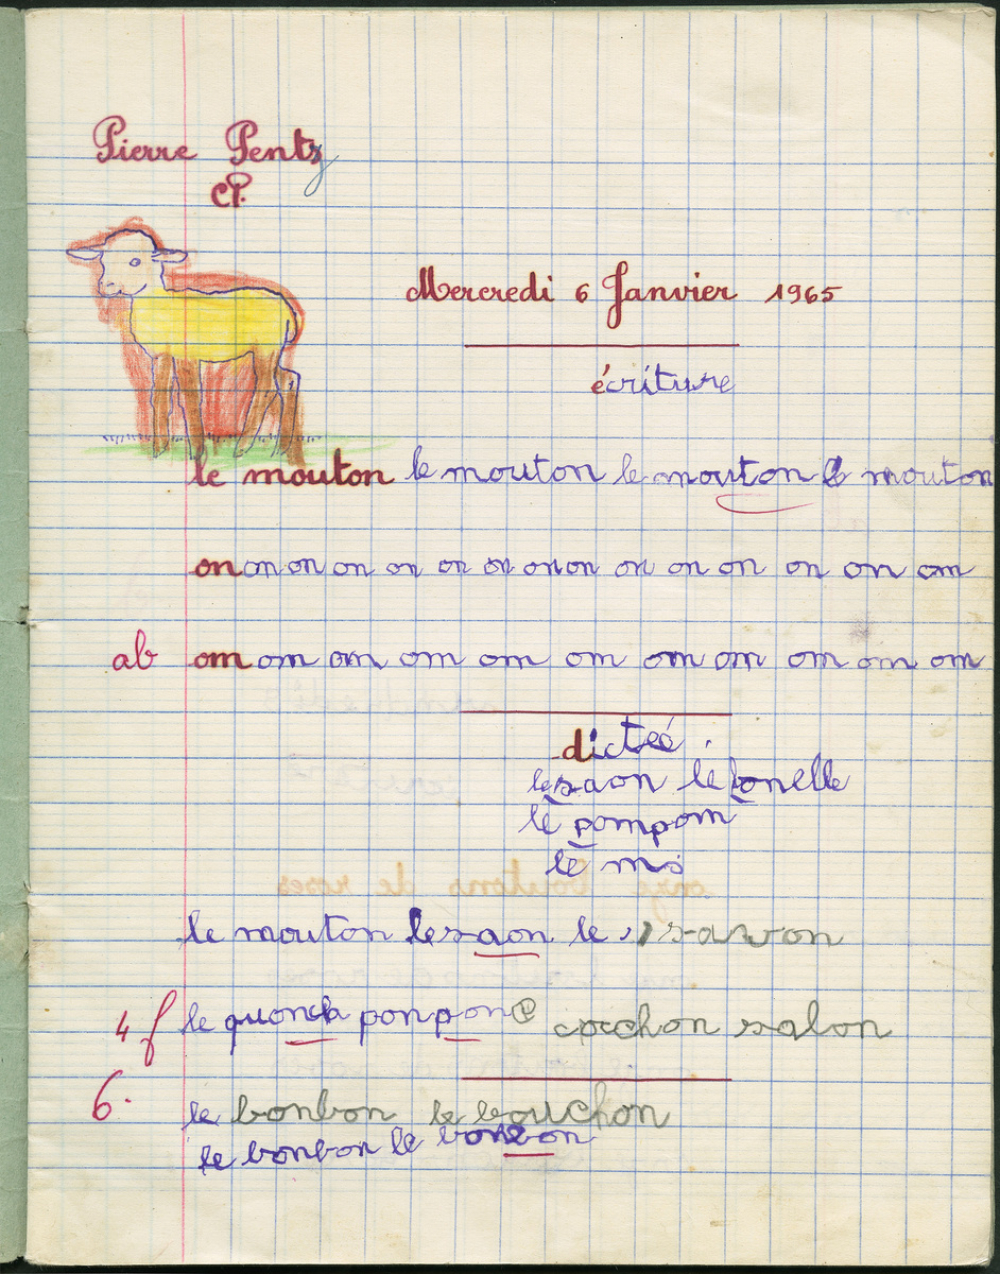 Pierre Pentz
CP.
Mercredi 6 Janvier 1965
écriture
le mouton le mouton le mouton le mouton
on on on on on on on on on on on on on on on
ab om om om om om om om om om om
dicteé.
le saon le bonelle
le pompom
le mo
le mouton le saon le savon
4 f le quonch ponpon cochon salon
6. le bonbon le bouchon
le bonbon le bonbon
onze boutons de roses